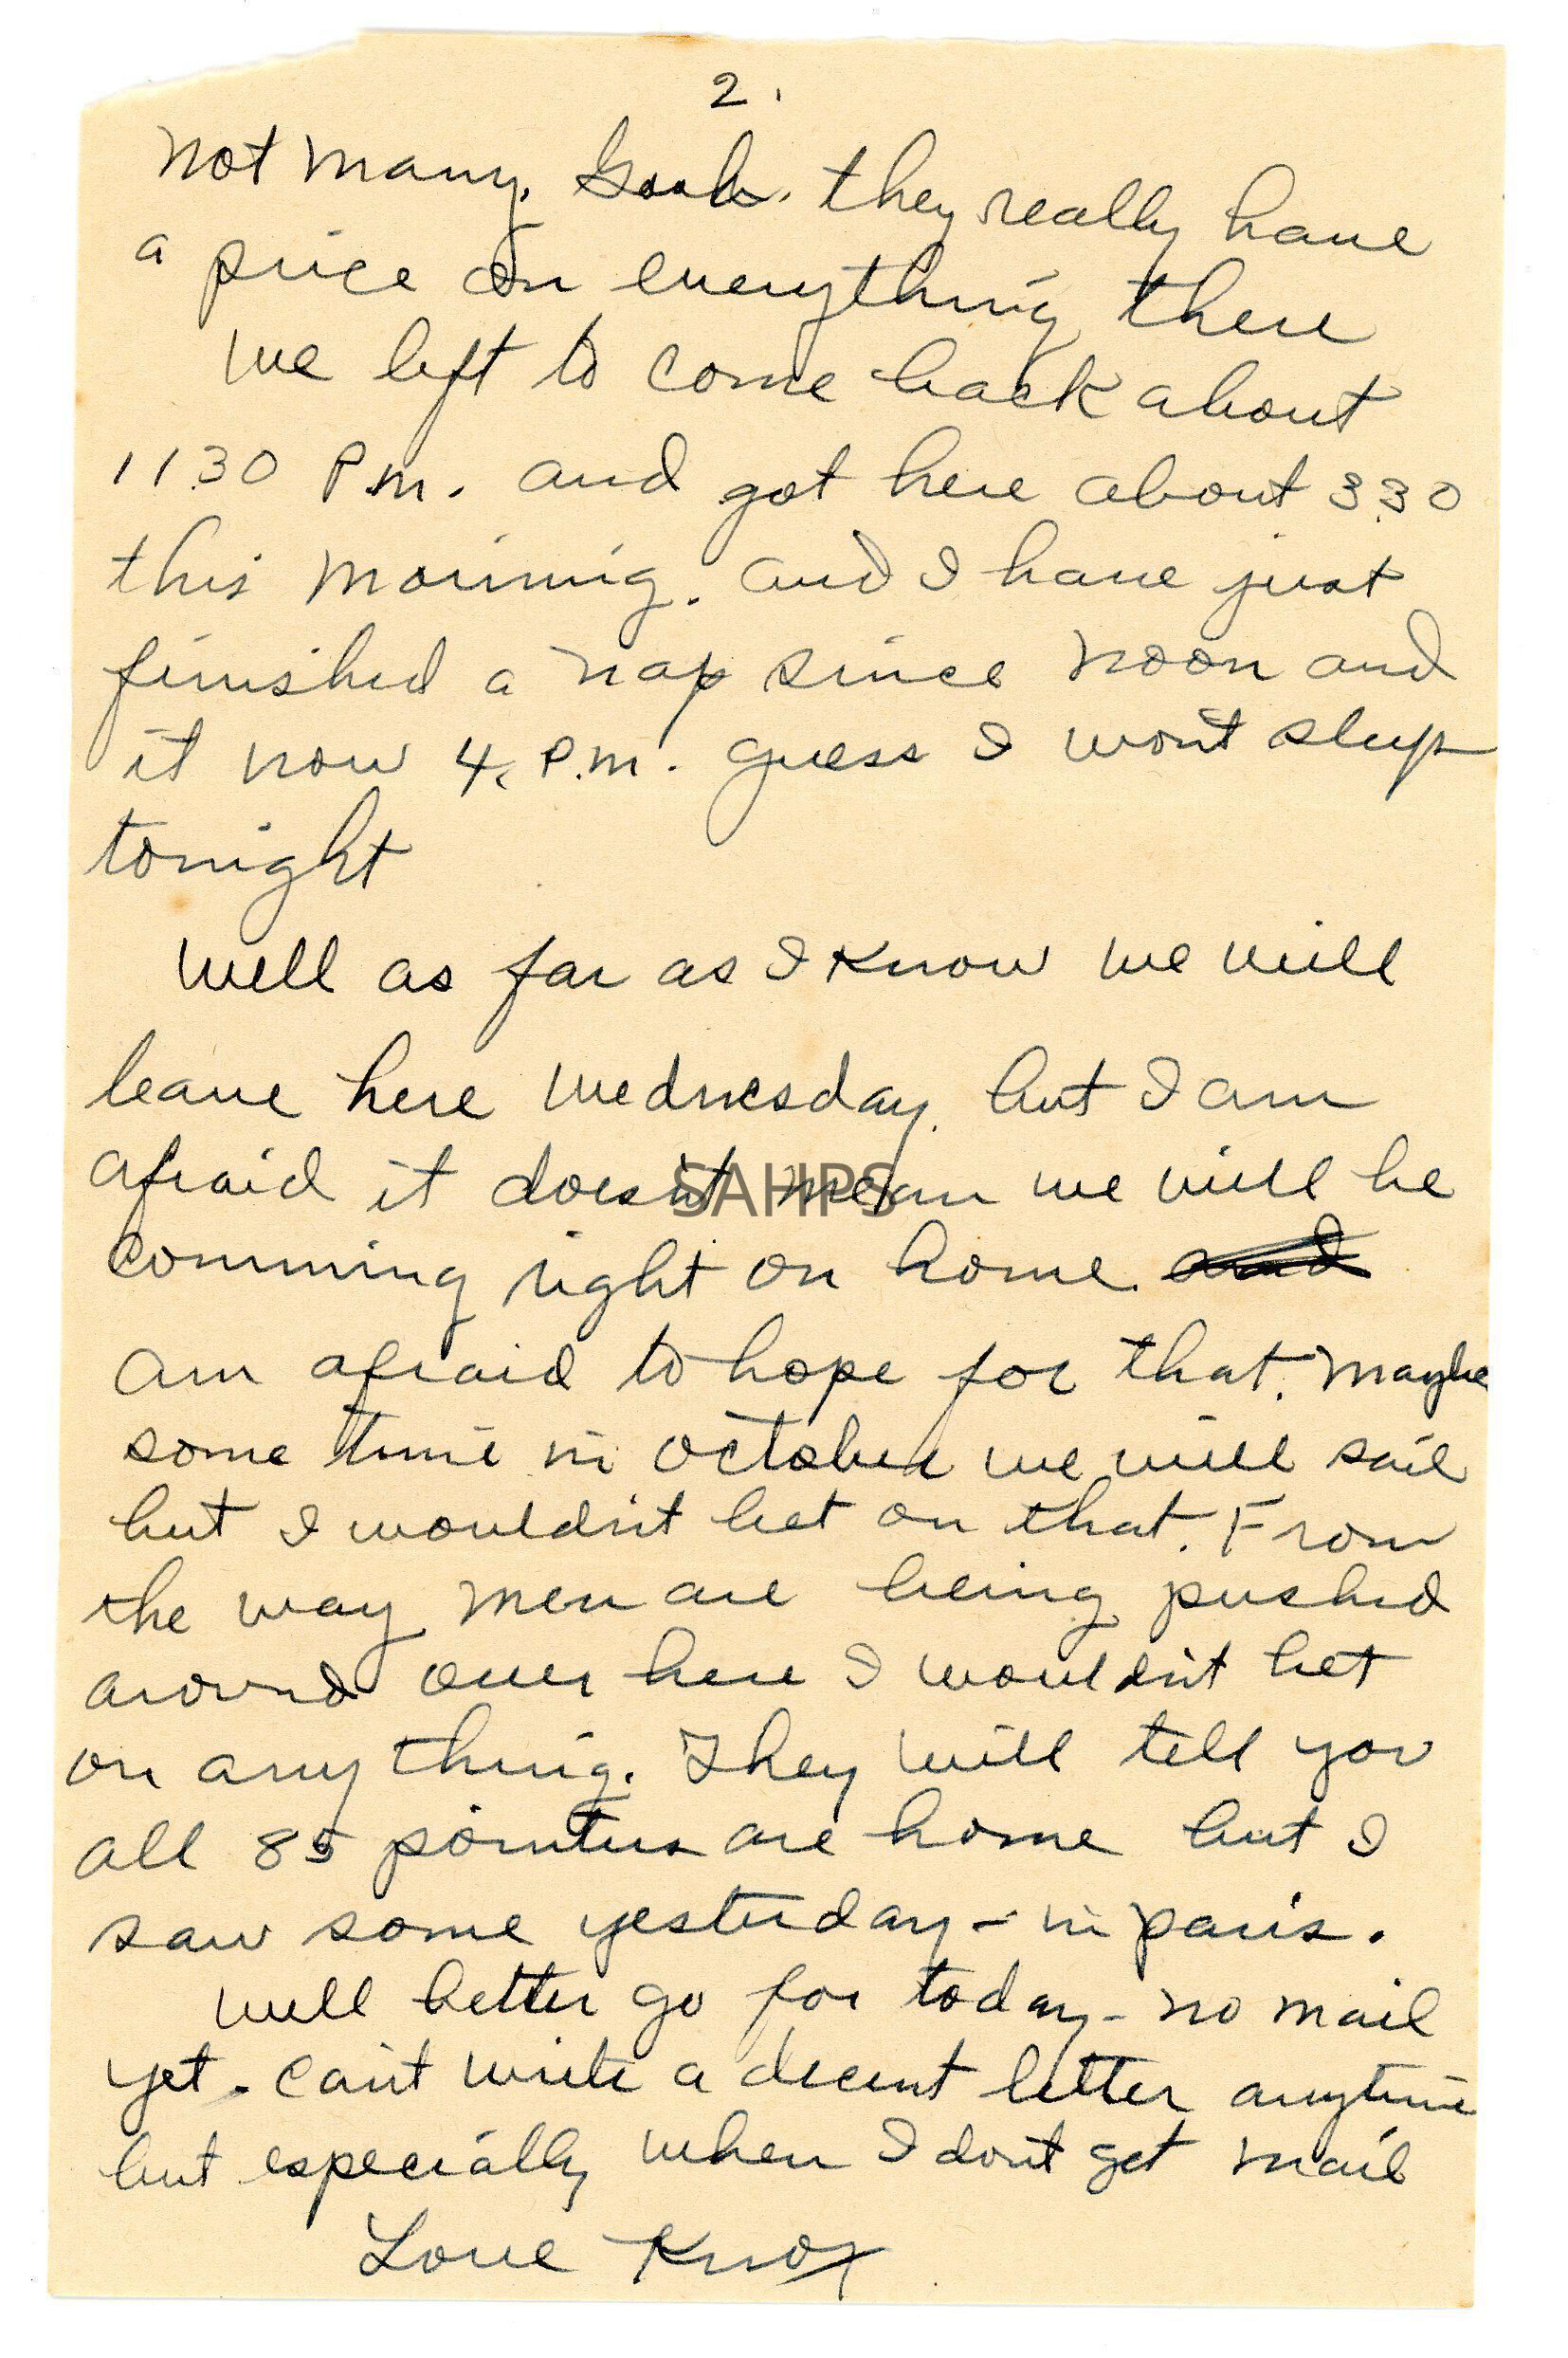 2.
not many. Gosh. they really have
a price on everything there
we left to come back about
11.30 P.m. and got here about 3.30
this morning. and I have just
finished a nap since noon and
it now 4. P.m. guess I won't sleep
tonight
well as far as I know we will
leave here wednesday. but I am
afraid it doesn't mean we will be
comming right on home. and
am afraid to hope for that. maybe
some time in october we will sail
but I wouldn't bet on that. From
the way men are being pushed
around over here I wouldn't bet
on any thing. They will tell you
all 85 pointers are home but I
saw some yesterday - in paris.
well better go for today - no mail
yet. can't write a decent letter anytime
but especially when I don't get mail
Love Knox
SAHPS